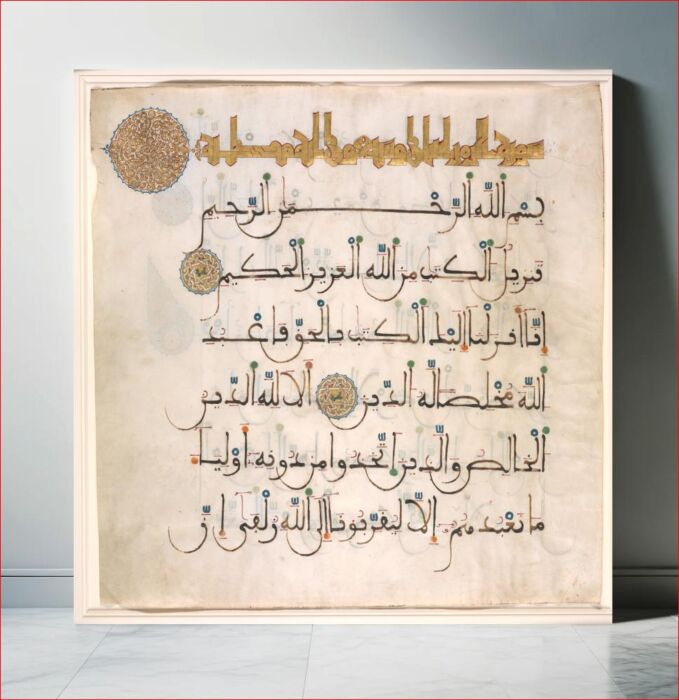 سورة الزمر
بِسْمِ اللَّهِ الرَّحْمَٰنِ الرَّحِيمِ
تَنزِيلُ الْكِتَٰبِ مِنَ اللَّهِ الْعَزِيزِ الْحَكِيمِ
إِنَّا أَنزَلْنَا إِلَيْكَ الْكِتَٰبَ بِالْحَقِّ فَاعْبُدِ
اللَّهَ مُخْلِصًا لَّهُ الدِّينَ أَلَا لِلَّهِ الدِّينُ
الْخَالِصُ وَالَّذِينَ اتَّخَذُوا مِن دُونِهِ أَوْلِيَاءَ
مَا نَعْبُدُهُمْ إِلَّا لِيُقَرِّبُونَا إِلَى اللَّهِ زُلْفَىٰ إِنَّ